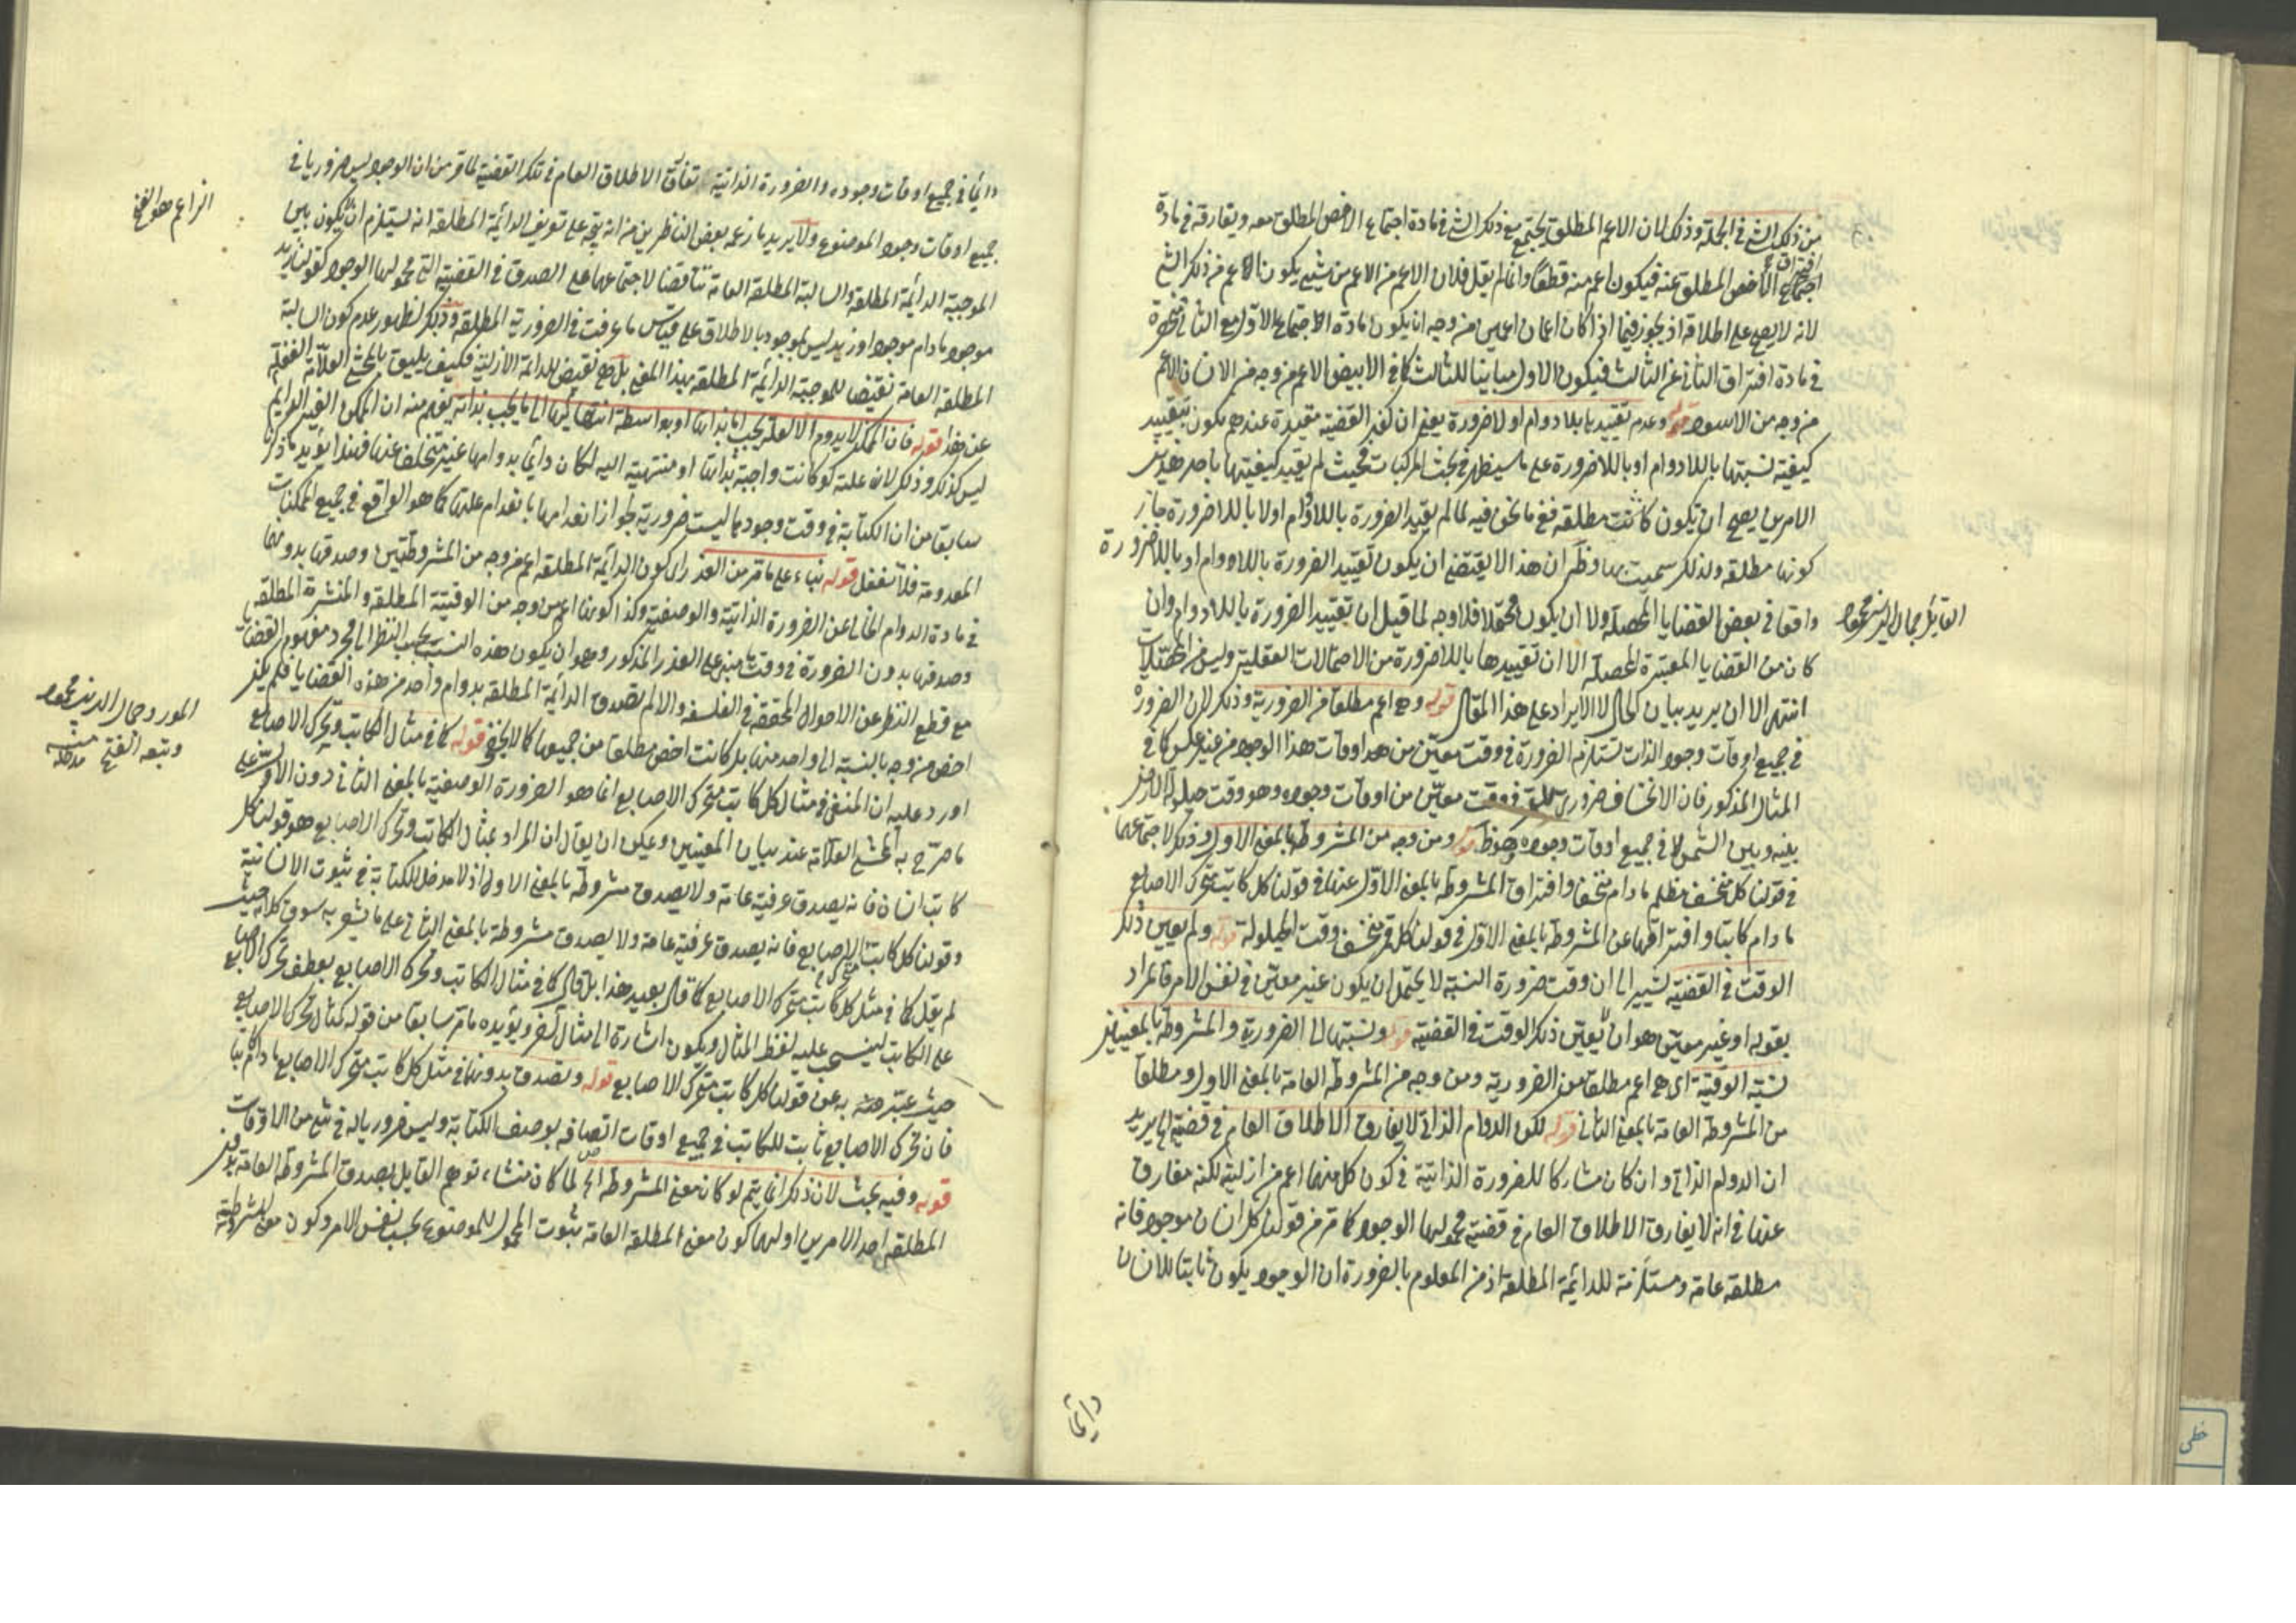 من ذلك الشئ في الجملة وذلك لان الاعم المطلق يجتمع مع ذلك الشئ في مادة اجتماع الاخص المطلق معه ويفارقه في مادة
افتراق الاخص المطلق عنه فيكون اعم منه قطعا وانما لم يقل فلان الاعم من الاعم من شيئ يكون اعم من ذلك الشئ
لانه لا يصح على اطلاقه اذ يجوز فيما اذا كان اعمان اعمين من وجه ان يكون مادة الاجتماع الاول مع الثاني منحصرة
في مادة افتراق الثاني عن الثالث فيكون الاول مباينا للثالث كما في الابيض الاعم من وجه من الانسان الاعم
من وجه من الاسود قوله وعدم تقييدها بلا دوام او لا ضرورة يعني ان القضية مقيدة عندهم يكون بتقييد
كيفية نسبتها باللا دوام او باللا ضرورة على ما سيظهر في بحث المركبات فحيث لم يقيد كيفيتها باحد هذين
الامرين يصح ان يكون كانت مطلقه ففي ما نحن فيه لما لم يقيد الضرورة باللا دوام اولا باللا ضرورة جاز
كونها مطلقه ولذلك سميت بها وظهر ان هذا لا يقتضي ان يكون تقييد الضرورة باللا دوام او باللا ضرورة
واقعا في بعض القضايا المحصله ولا ان يكون محتملا فلا وجه لما قيل ان تقييد الضرورة باللا دوام وان
كان من القضايا المعتبرة المحصله الا ان تقييدها باللا ضرورة من الاحتمالات العقلية وليس من المحتملات
انتهى الا ان يريد بيان الحال لا الايراد على هذا المقال قوله وهي اعم مطلقا من الضرورية وذلك لان الضرورة
في جميع اوقات وجود الذات تستلزم الضرورة في وقت معين من هذه اوقات هذا الوجود من غير عكس كما في
المثال المذكور فان الانخساف ضروري للقمر في وقت معين من اوقات وجوده وهو وقت حيلولة الارض
بينه وبين الشمس لا في جميع اوقات وجوده وهو ظ قوله ومن وجه من المشروطة بالمعنى الاول وذلك لاجتماعهما
في قولنا كل منخسف مظلم مادام منخسفا وافتراق المشروطة بالمعنى الاول عنها في قولنا كل كاتب متحرك الاصابع
مادام كاتبا وافتراقها عن المشروطة بالمعنى الاول في قولنا كل قمر منخسف وقت الحيلولة قوله ولم يعين ذلك
الوقت في القضية يشير الى ان وقت ضرورة النسبة لا يحتمل ان يكون غير معين في نفس الامر فالمراد
بقوله او غير معين هو ان لا يعين ذلك الوقت في القضية قوله ونسبتها الى الضرورية والمشروطة بالمعنيين
نسبة الوقتية اي هي اعم مطلقا من الضرورية ومن وجه من المشروطة العامة بالمعنى الاول ومطلقا
من المشروطة العامة بالمعنى الثاني قوله لكون الدوام الذاتي لا يفارق الاطلاق العام في قضية ما يريد
ان الدوام الذاتي وان كان مشاركا للضرورة الذاتية في كون كل منهما اعم من ازلية لكنه مفارق
عنها في انه لا يفارق الاطلاق العام في قضية محمولها الوجود كما مر من قولنا كل انسان موجود فانه
مطلقه عامة ومستلزمة للدائمة المطلقة اذ من المعلوم بالضرورة ان الوجود يكون ثابتا للانسان
القايل جمال الدين محمود
دائما
دائما في جميع اوقات وجوده والضرورة الذاتية تفارق الاطلاق العام في تلك القضية لما مر من ان الوجود ليس ضروريا في
جميع اوقات وجود الموضوع ولا يريد ما زعمه بعض الناظرين من انه يتجه على تعريف الدائمة المطلقة انه يستلزم ان لا يكون بين
الموجبة الدائمة المطلقة والسالبة المطلقة العامة تناقضا لاجتماعهما على الصدق في القضية التي محمولها الوجود كقولنا زيد
موجود مادام موجودا وزيد ليس بموجود بالاطلاق على قياس ما عرفت في الضرورية المطلقة وذلك لظهور عدم كون السالبة
المطلقة العامة نقيضا للموجبة الدائمة المطلقة بهذا المعنى بل هي نقيض للدائمة الازلية فكيف يليق بالمحشي العلامة الغفلة
عن هذا قوله فان الممكن لا يدوم الا لعلة يجب اما بذاتها او بواسطة انتهائها الى ما يجب بذاته يفهم منه ان الممكن الغير الدايم
ليس كذلك وذلك لان علته لو كانت واجبة بذاتها او منتهية اليه لكان دائما بدوامها غير متخلف عنها فهذا يؤيد ما ذكرنا
سابقا من ان الكتابة في وقت وجودها ليست ضرورية لجواز انعدامها بانعدام علتها كما هو الواقع في جميع الممكنات
المعدومة فلا تغفل قوله بناء على ما مر من العذر اي كون الدائمة المطلقة اعم من وجه من المشروطتين وصدقها بدونهما
في مادة الدوام الخالي عن الضرورة الذاتية والوصفية وكذا كونها اعم من وجه من الوقتية المطلقة والمنتشرة المطلقة
وصدقها بدون الضرورة في وقت ما مبني على العذر المذكور وهو ان يكون هذه النسب بحسب النظر الى مجرد مفهوم القضايا
مع قطع النظر عن الاصول المحققة في الفلسفة والا لم تصدق الدائمة المطلقة بدون واحد من هذه القضايا فلم يكن
اخص من وجه بالنسبة الى واحد منها بل كانت اخص مطلقا من جميعها كما لا يخفى قوله كما في مثال الكاتب وتحرك الاصابع
اورد عليه ان المنفي في مثال كل كاتب متحرك الاصابع انما هو الضرورة الوصفية بالمعنى الثاني دون الاول على
ما صرح به المحشي العلامة عند بيان المعنيين ويمكن ان يقال ان المراد بمثال الكاتب وتحرك الاصابع هو قولنا كل
كاتب انسان فانه يصدق عرفية عامة ولا يصدق مشروطة بالمعنى الاول اذ لا مدخل للكتابة في ثبوت الانسانية
وقولنا كل كاتب متحرك الاصابع فانه يصدق عرفية عامة ولا يصدق مشروطة بالمعنى الثاني على ما يشعر به سوق كلامه حيث
لم يقل كما في مثل كل كاتب متحرك الاصابع كما قال بعيد هذا بل قال كما في مثال الكاتب وتحرك الاصابع بعطف تحرك الاصابع
على الكاتب لينسحب عليه لفظ المثال ويكون اشارة الى مثال آخر ويؤيده ما مر سابقا من قوله كمثال تحرك الاصابع
حيث عبر به عن قولنا كل كاتب متحرك الاصابع قوله وتصدق بدونها في مثل كل كاتب متحرك الاصابع مادام كاتبا
فان تحرك الاصابع ثابت للكاتب في جميع اوقات اتصافه بوصف الكتابة وليس ضروريا له في شئ من الاوقات
قوله وفيه بحث لان ذلك انما يتم لو كان معنى المشروطة الخ لما كان منشاء توهم القايل بصدق المشروطة العامة بدون
المطلقة احد الامرين اولهما كون معنى المطلقة العامة ثبوت المحمول للموضوع بحسب نفس الامر وكون معنى المشروطة
الزاعم هو الفتح
المورد جمال الدين محمود
وتبعه الفتح
خطى